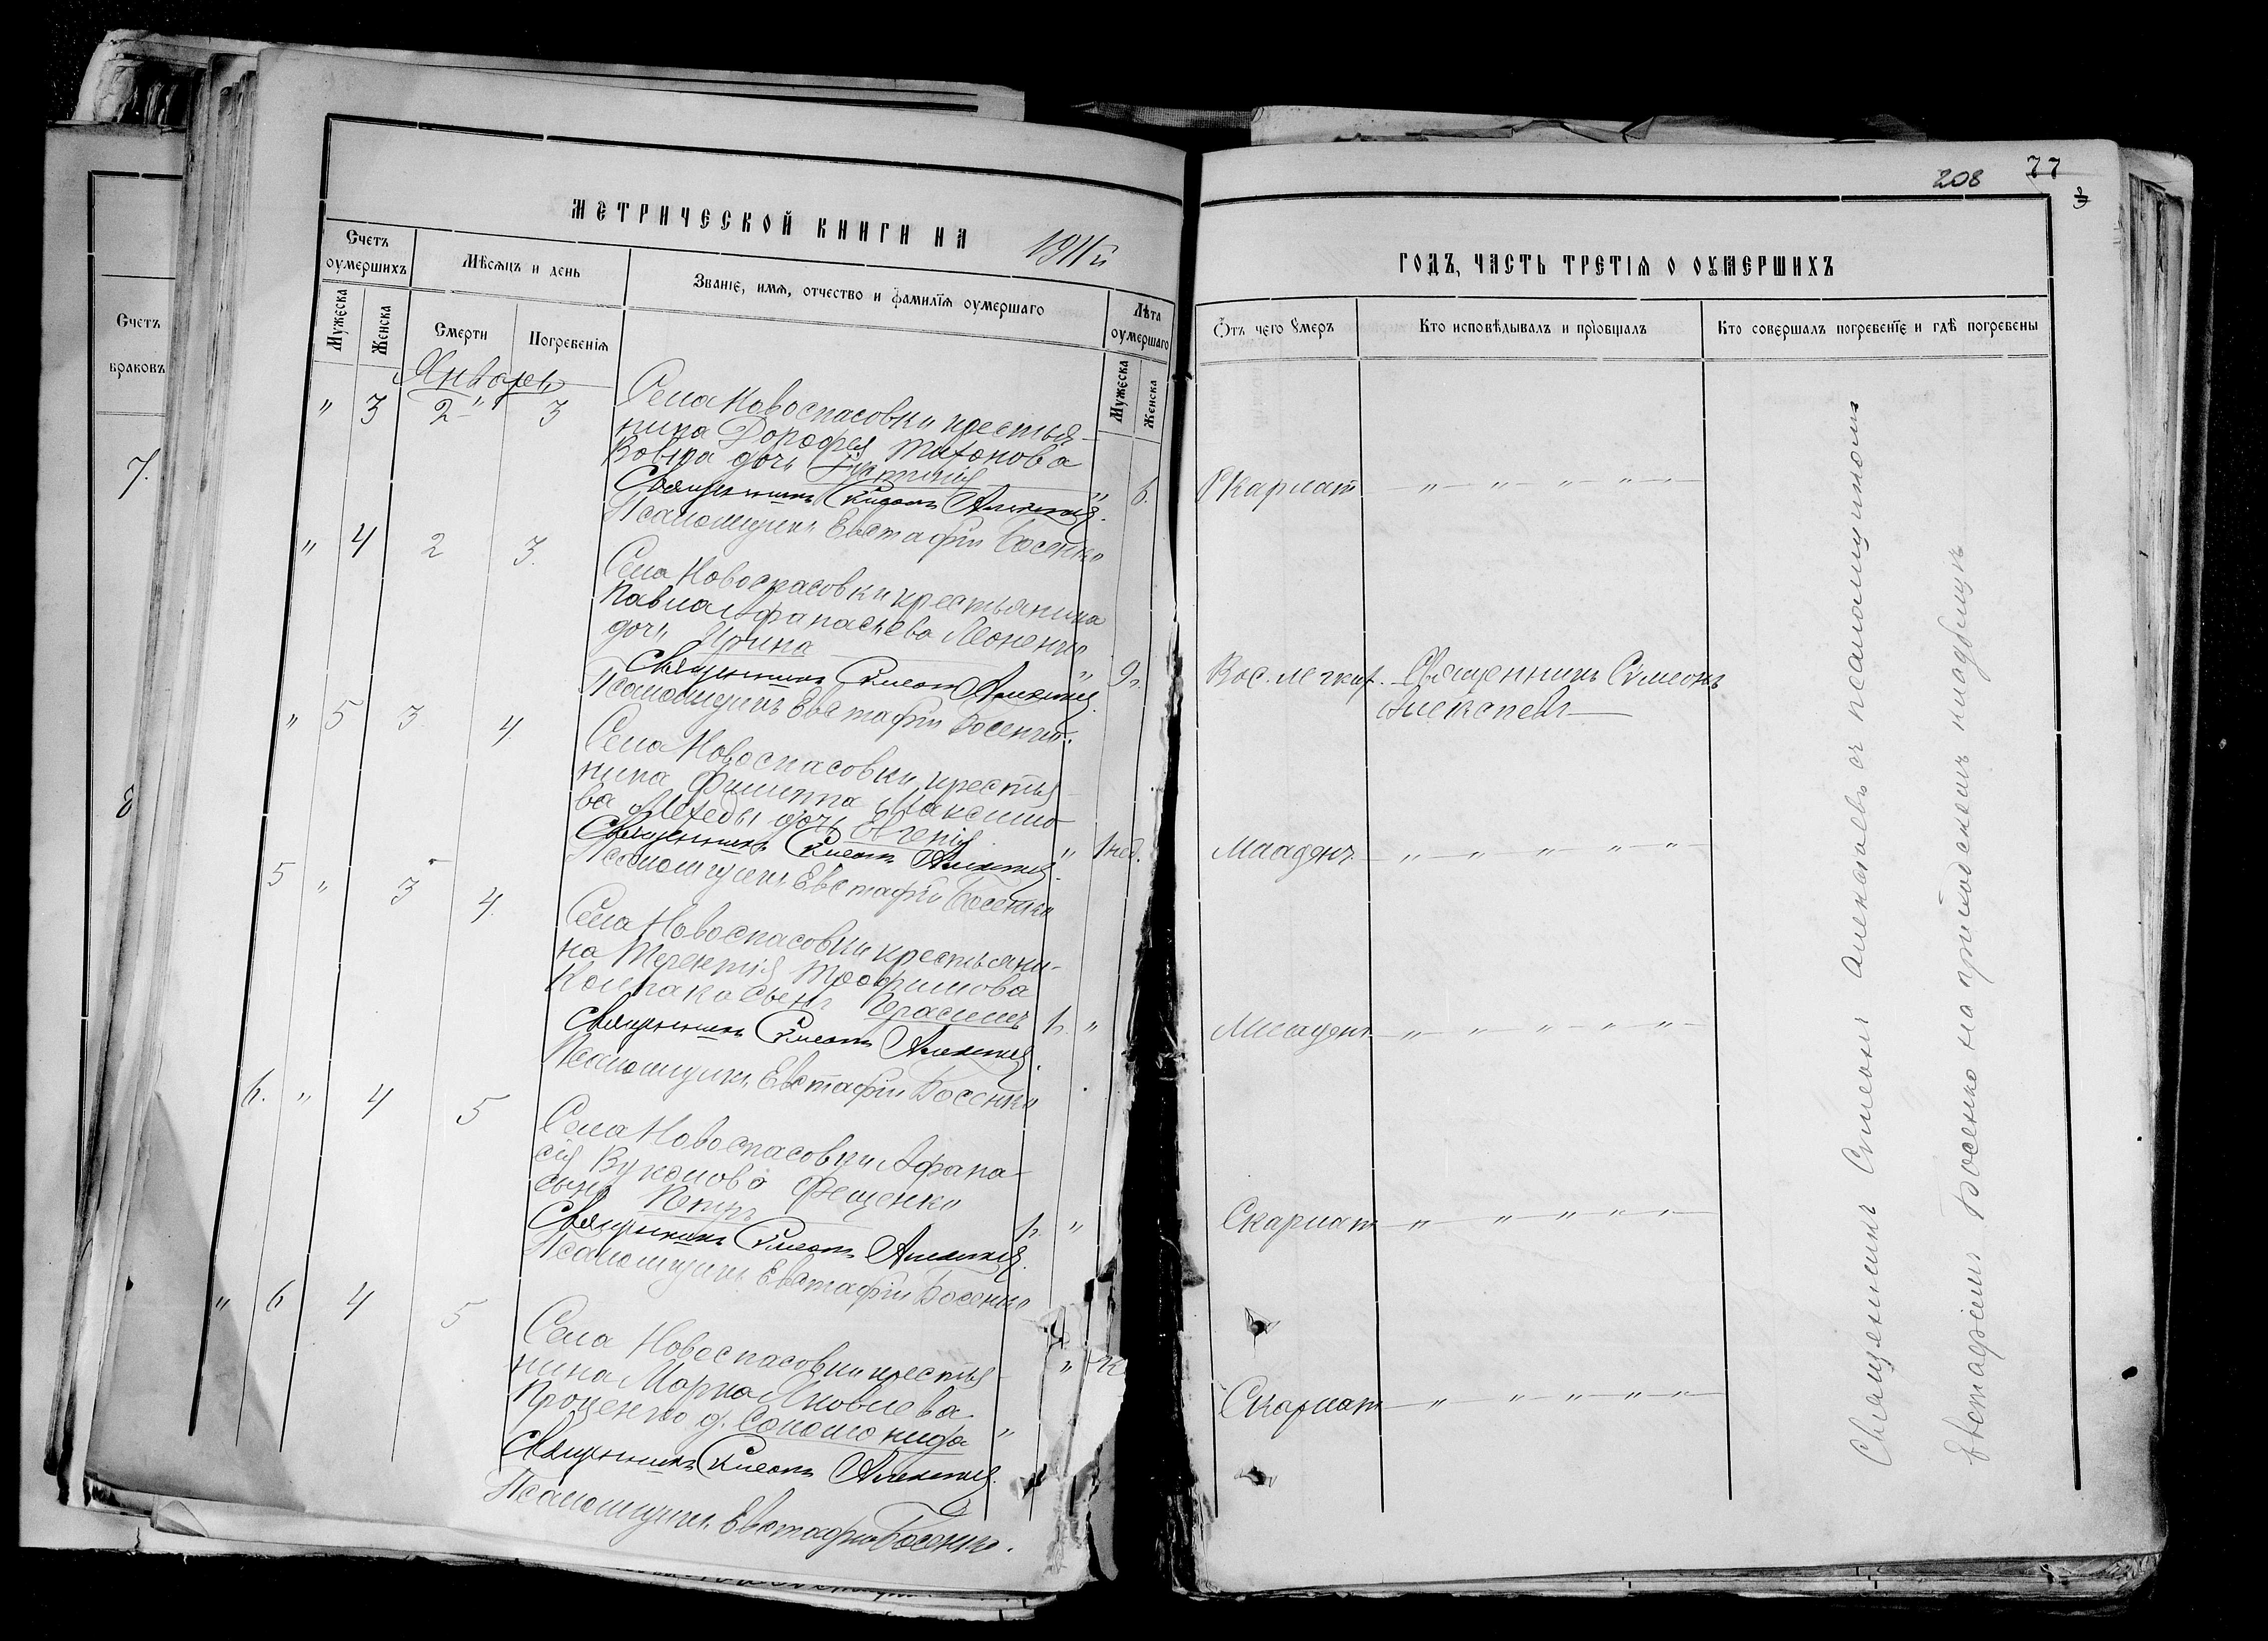 Счетъ
браковъ
7.
8
МЕТРИЧЕСКОЙ КНИГИ НА 1911й
Счетъ оумершихъ
Мѣсяцъ и день
Званіе, имя, отчество и фамилія оумершаго
Лѣта оумершаго
Мужеска
Женска
Смерти
Погребенія
Мужеска
Женска
Январь
" 3 2 3
Села Новоспасовки крестья-
нина Дорофея Тихонова
Ковтра дочь
Священникъ Симеонъ Алексѣевъ " 6.
Псаломщикъ Евстафій Босенко
" 4 2 3.
Села Новоспасовки крестьянина
Павла Афанасьева Леоненко
дочь Ирина
Священникъ Симеонъ Алексѣевъ. " 9г.
Псаломщикъ Евстафій Босенко.
" 5 3 4.
Села Новоспасовки крестья-
нина Филиппа Максимо-
ва Мехеды дочь Евгенія
Священникъ Симеонъ Алексѣевъ. " 1 нед.
Псаломщикъ Евстафій Босенко
5 " 3 4.
Села Новоспасовки крестьяни-
на Терентія Трофимова
Колпака сынъ Герасимъ 1г. "
Священникъ Симеонъ Алексѣевъ.
Псаломщикъ Евстафій Босенко
6. " 4 5
Села Новоспасовки Афана-
сія Вуколова Фещенко
сынъ Петръ
Священникъ Симеонъ Алексѣевъ. 1г. "
Псаломщикъ Евстафій Босенко
" 6 4 5
Села Новоспасовки крестья-
нина Марка Яковлева
Проценко д. Соломонида "
Священникъ Симеонъ Алексѣевъ.
Псаломщикъ Евстафій Босенко.
208 77
ГОДЪ, ЧАСТЬ ТРЕТІЯ О ОУМЕРШИХЪ
Отъ чего умеръ
Кто исповѣдывалъ и пріобщалъ
Кто совершалъ погребеніе и гдѣ погребены
Скарлат. " " " " "
Вос. легких. Священникъ Симеонъ
Алексѣевъ
Младенч. " " " " "
Младенч. " " " " "
Скарлат. " " " " "
Скарлат. " " " " "
Священникъ Симеонъ Алексѣевъ съ псаломщикомъ
Евстафіемъ Босенко на приходскомъ кладбищѣ